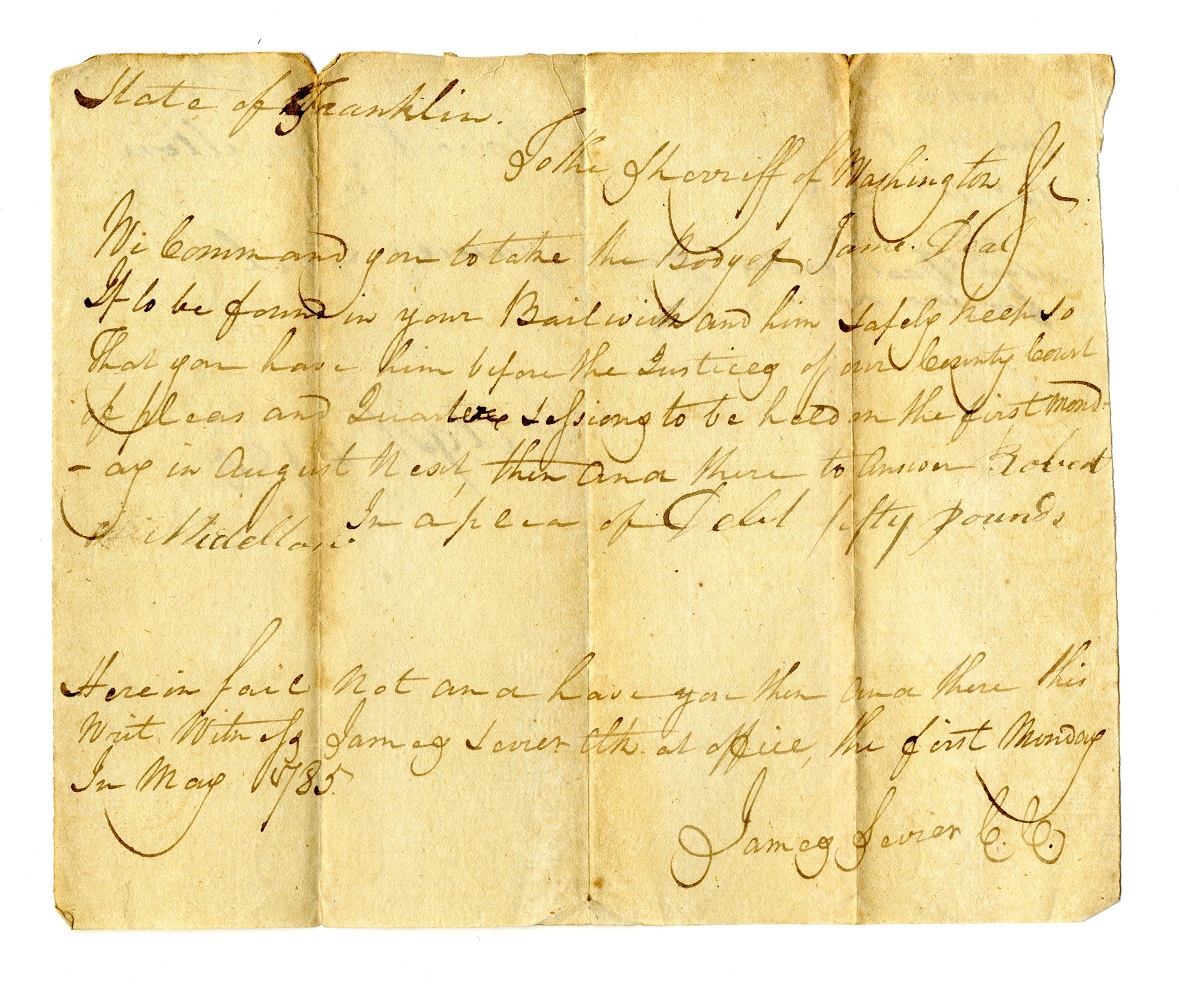 State of Franklin.
To the Sherriff of Washington
We Command you to take the Body of James
If to be found in your Bailwick and him safely keep so
That you have him before the Justices of our County Court
of pleas and Quarter sessions to be held on the first Mond-
-ay in August Next, then and there to answer Robert
In a plea of Debt fifty pounds
Herein fail Not and have you then and there this
Writ. Witness James Sevier Clk. at office, the first Monday
In May 1785.
James Sevier C. C.